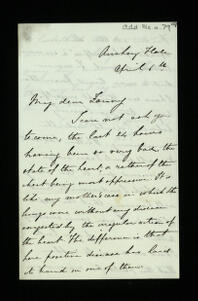 Add Ms a. 79
April 6th
My dear
I dare not ask you
to come, the last 24 hours
having been so very bad, the
state of the heart, & rather of the
chest being most oppressive. It's
like my mother's case in which the
lungs were without any disease
congested by the irregular action of
the heart. The difference is that
here positive disease has laid
its hand on one of them.